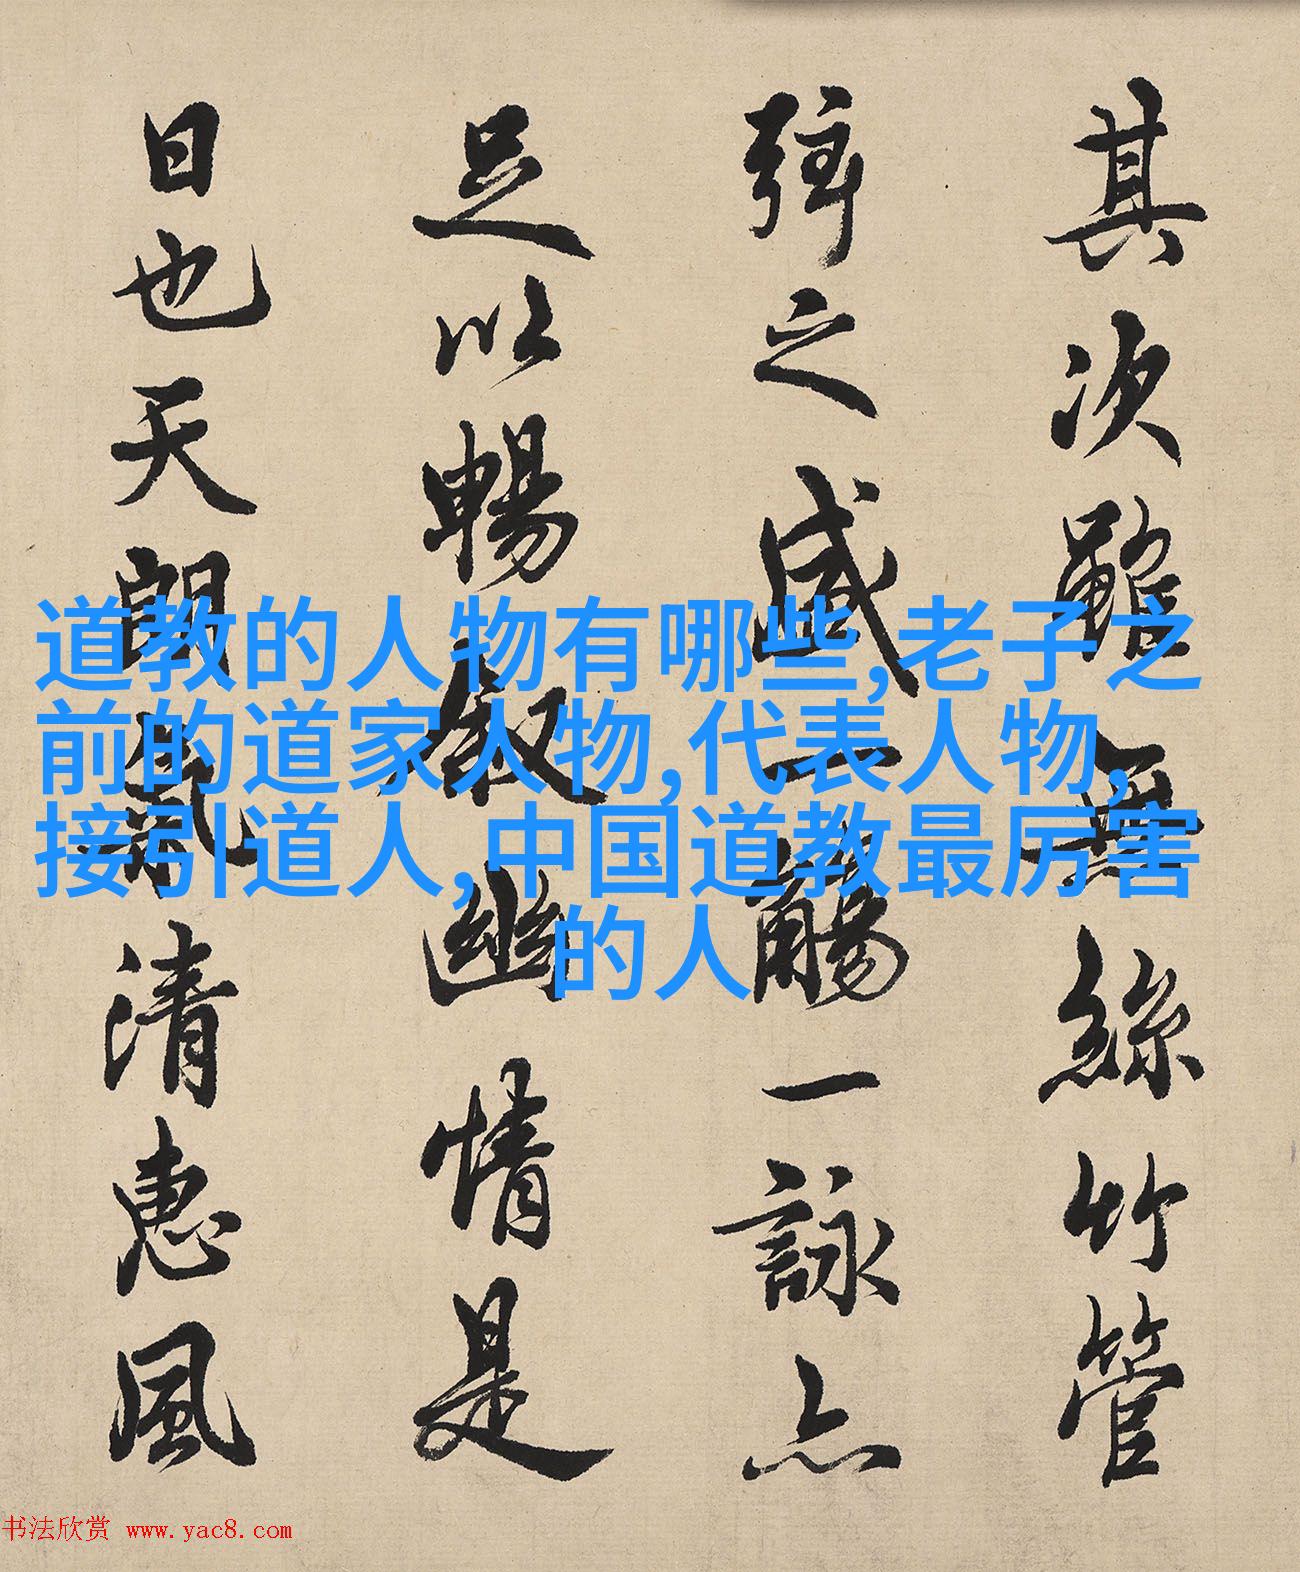 其次雖無絲竹管
弦之盛一觴一詠亦
足以暢叙幽情是
日也天朗氣清惠風
道教的人物有哪些,老子之
前的道家人物,代表人物,
接引道人,中国道教最厉害
的人
书法欣赏 www.yac8.com